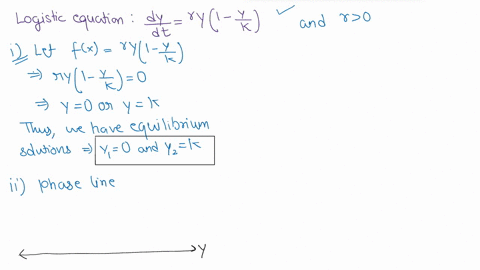 Logistic equation : dy/dt = ry(1 - y/K) ✓ and r>0
i) Let f(x) = ry(1 - y/K)
⇒ ry(1 - y/K) = 0
⇒ y = 0 or y = K
Thus, we have equilibrium
solutions ⇒ y₁=0 and y₂=K
ii) phase line
y